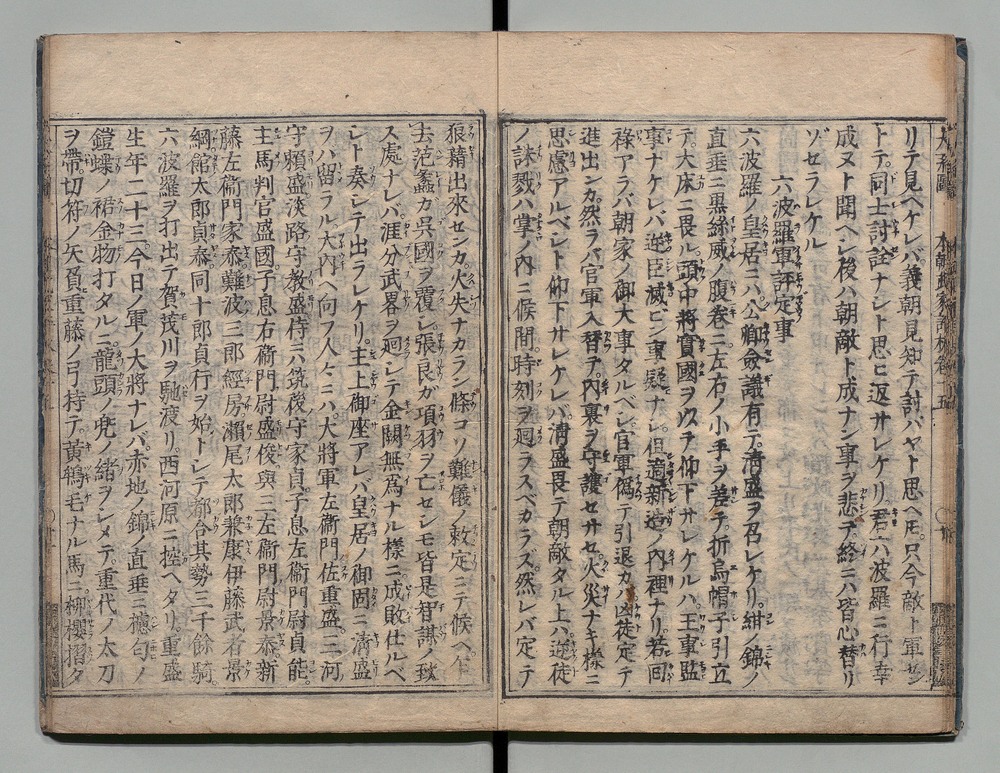 リテ見ヘケレバ義朝見知テ討バヤト思ヘ𪜈只今敵ト軍セン
トテ同士討詮ナシト思ヒ返サレケリ君六波羅ニ行幸
成ヌト聞ヘシ後ハ朝敵ト成ナン事ヲ悲テ終ニハ皆心替リ
ゾセラレケル
六波羅軍評定事
六波羅ノ皇居ニハ公卿僉議有テ清盛ヲ召レケリ紺ノ錦ノ
直垂ニ黒絲威ノ腹巻ニ左右ノ小手ヲ差テ折烏帽子引立
テ大床ニ畏ル頭中将實國ヲ以テ仰下サレケルハ王事監
事ナケレバ逆臣滅ビン事疑ナシ但適新造ノ内裡ナリ若回
禄アラバ朝家ノ御大事タルベシ官軍僞テ引退カバ凶徒定テ
進出ンカ然ラバ官軍入替テ内裏ヲ守護セサセ火災ナキ様ニ
思慮アルベシト仰下サレケレバ清盛畏テ朝敵タル上ハ逆徒
ノ誅戮ハ掌ノ内ニ候間時刻ヲ廻ラスベカラズ然レバ定テ
狼藉出來センカ火失ナカラン條コソ難儀ノ敕定ニテ候ヘ乍
去范蠡カ呉國ヲ覆シ張良ガ項羽ヲ亡セシモ皆是智謀ノ致
ス處ナレバ涯分武畧ヲ廻シテ金闕無為ナル様ニ成敗仕ルベ
シト奏シテ出ラレケリ主上御座アレバ皇居ノ御固ニ清盛
ヲハ留ラル大内ヘ向フ人々ニハ大將軍左衞門佐重盛三河
守頼盛淡路守教盛侍ニハ筑後守家貞子息左衞門尉貞能
主馬判官盛國子息右衞門尉盛俊與三左衞門尉景泰新
藤左衞門家泰難波三郎經房瀬尾太郎兼康伊藤武者景
綱館太郎貞泰同十郎貞行ヲ始トシテ都合其勢三千餘騎
六波羅ヲ打出テ賀茂川ヲ馳渡リ西河原ニ控ヘタリ重盛
生年二十三今日ノ軍ノ大將ナレバ赤地ノ錦ノ直垂ニ櫨匂ノ
鎧蝶ノ裾金物打タルニ龍頭ノ兜ノ緒ヲシメテ重代ノ太刀
ヲ帶切符ノ矢負重藤ノ弓持テ黄鵇毛ナル馬ニ柳櫻摺タ